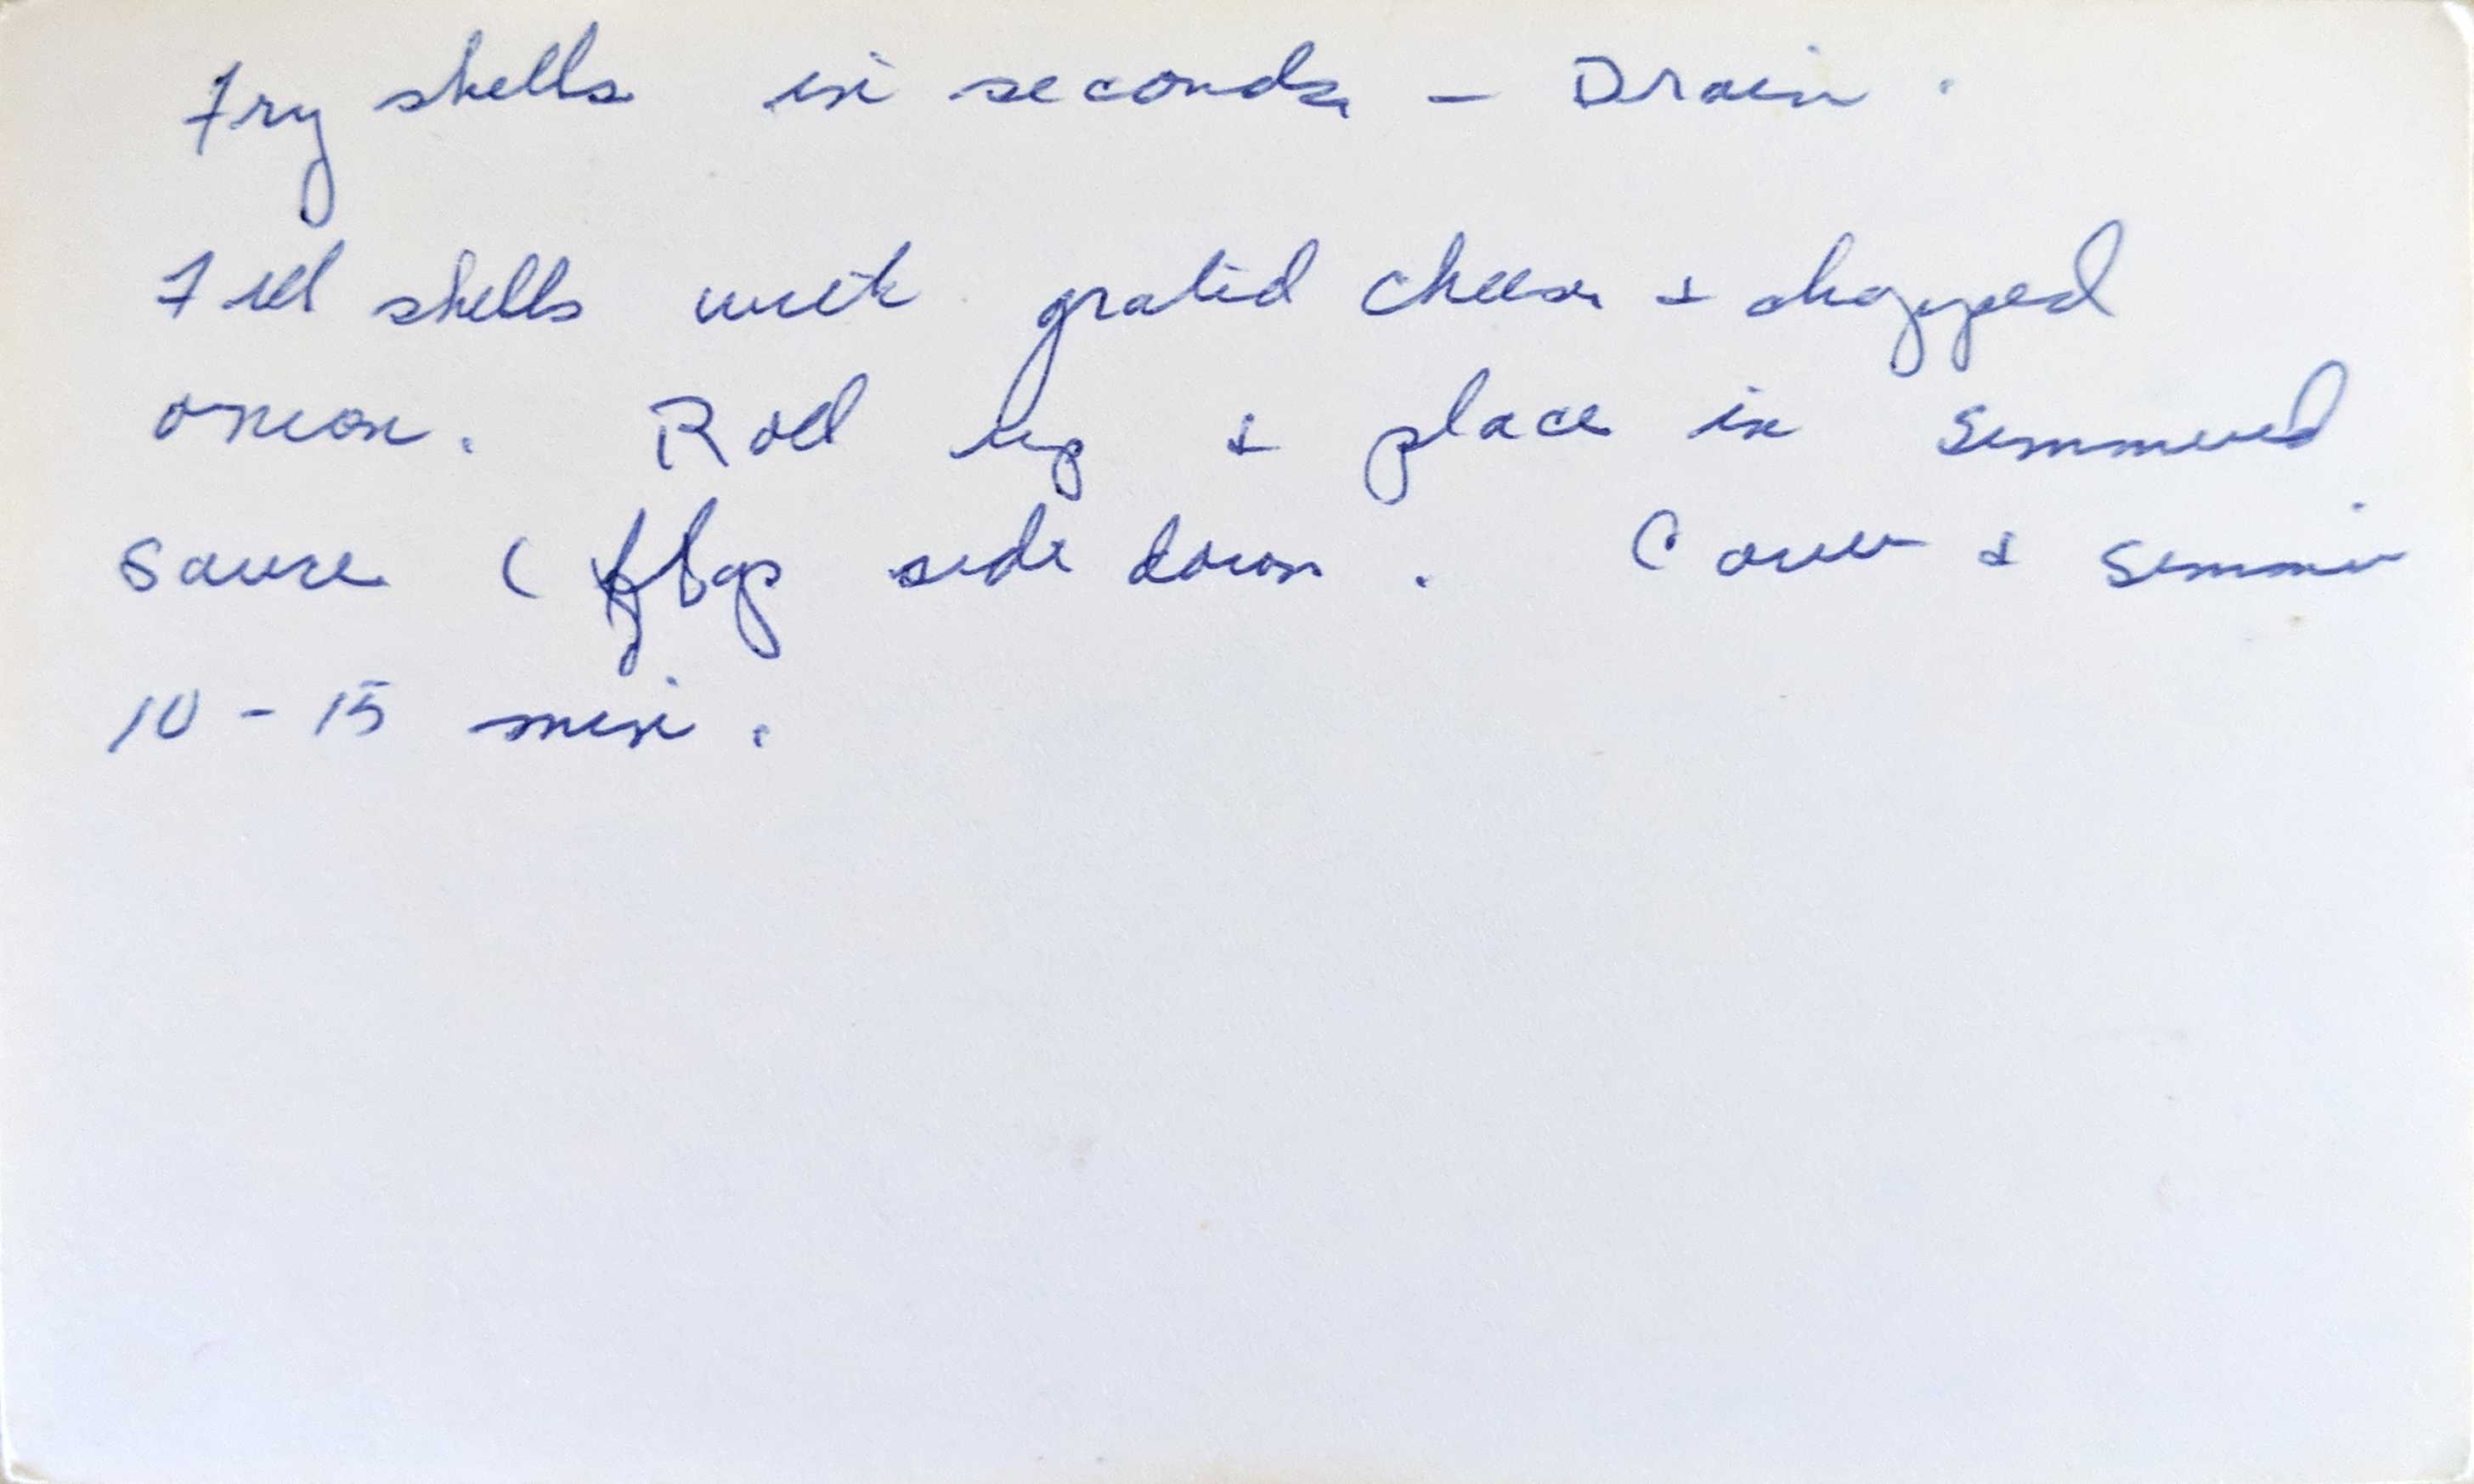 Fry shells in seconds - Drain.
Fill shells with grated cheese & chopped
onion. Roll up & place in simmered
sauce ( flap side down. Cover & simmer
10 - 15 min.